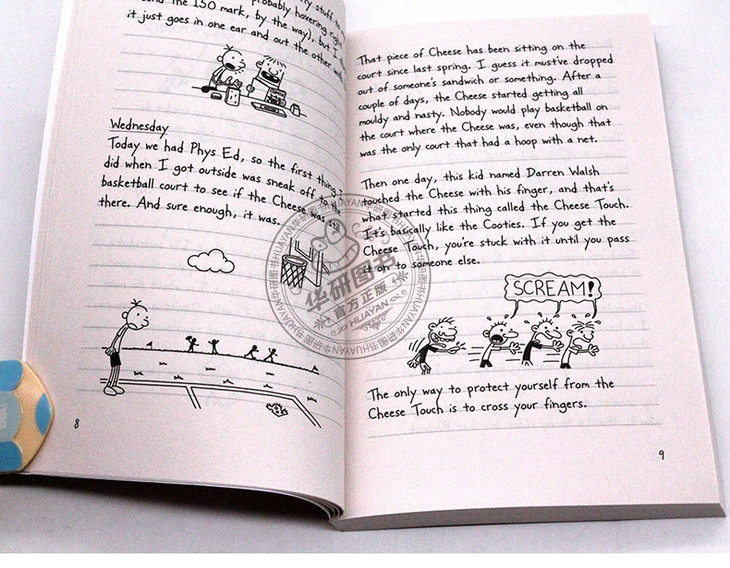 stuff to
probably hovering right
the 150 mark, by the way), but I
it just goes in one ear and out the other with
Wednesday
Today we had Phys Ed, so the first thing I
did when I got outside was sneak off to the
basketball court to see if the Cheese was still
there. And sure enough, it was.
8
That piece of Cheese has been sitting on the
court since last spring. I guess it must've dropped
out of someone's sandwich or something. After a
couple of days, the Cheese started getting all
mouldy and nasty. Nobody would play basketball on
the court where the Cheese was, even though that
was the only court that had a hoop with a net.
Then one day, this kid named Darren Walsh
touched the Cheese with his finger, and that's
what started this thing called the Cheese Touch.
It's basically like the Cooties. If you get the
Cheese Touch, you're stuck with it until you pass
it on to someone else.
SCREAM!
The only way to protect yourself from the
Cheese Touch is to cross your fingers.
9
华研图书
官方正版
HUAYAN